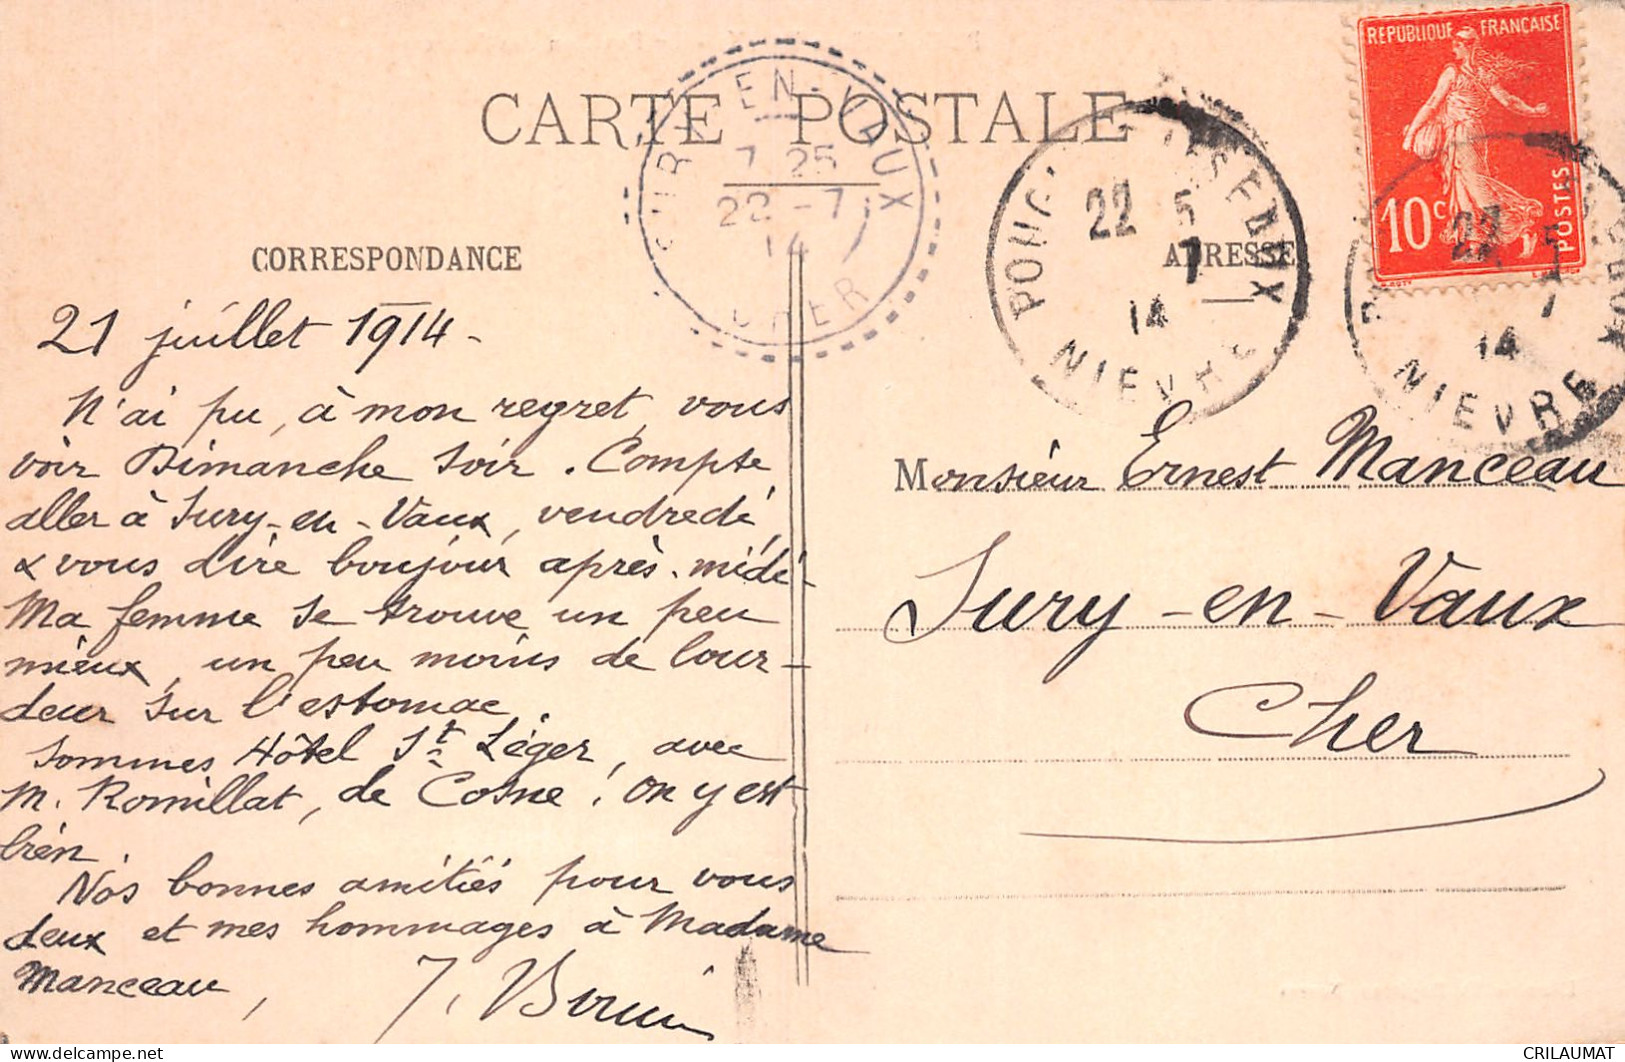 CARTE POSTALE
CORRESPONDANCE
ADRESSE
REPUBLIQUE FRANÇAISE
10c
POSTES
EN-VAUX
7 25
22 -7
14
CHER
22 5
7
14
NIEVRE
22 5
7
14
NIEVRE
21 juillet 1914 -
N'ai pu, à mon regret, vous
voir Dimanche soir. Compte
aller à Sury-en-Vaux, vendredi,
& vous dire bonjour après-midi -
Ma femme se trouve un peu
mieux, un peu moins de lour-
deur sur l'estomac.
Sommes Hôtel St Léger, avec
M. Romillat, de Cosne ! On y est
bien.
Nos bonnes amitiés pour vous
deux et mes hommages à Madame
Manceau,
Monsieur Ernest Manceau
Sury-en-Vaux
Cher
delcampe.net
CRILAUMAT